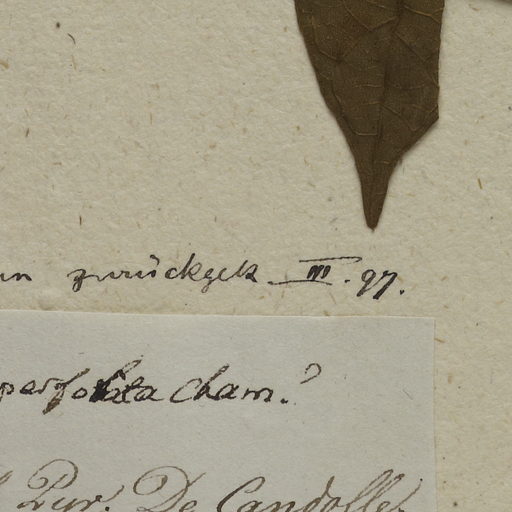 zurückgek. III. 97.
perfoliata Cham.?
Pyr. De Candolle